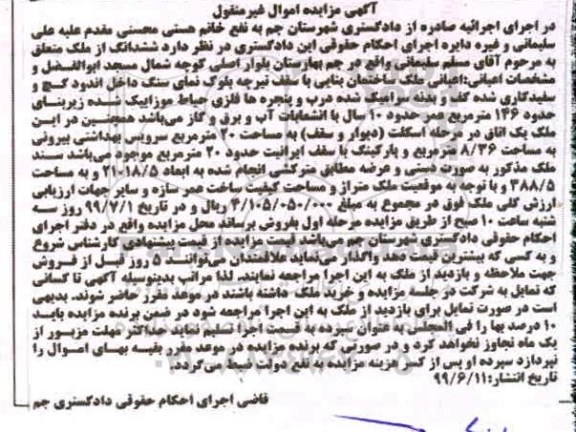 آگهی مزایده اموال غیرمنقول
در اجرای اجرائیه صادره از دادگستری شهرستان جم به نفع خانم هستی محسنی مقدم علیه علی
سلیمانی و غیره دایره اجرای احکام حقوقی این دادگستری در نظر دارد ششدانگ از ملک متعلق
به مرحوم آقای مسلم سلیمانی واقع در جم بهارستان بلوار اصلی کوچه شمال مسجد ابوالفضل و
مشخصات اعیانی: اعیانی ملک ساختمان بنایی با سقف تیرچه بلوک نمای سنگ داخل اندود گچ و
سفیدکاری شده کف و بدنه سرامیک شده درب و پنجره ها فلزی حیاط موزاییک شده زیربنای
حدود ۱۴۶ مترمربع عمر حدود ۱۰ سال با انشعابات آب و برق و گاز می‌باشد همچنین در این
ملک یک اتاق در مرحله اسکلت (دیوار و سقف) به مساحت ۲۰ مترمربع سرویس بهداشتی بیرونی
به مساحت ۸/۳۶ مترمربع و پارکینگ با سقف ایرانیت حدود ۲۰ مترمربع موجود می‌باشد سند
ملک مذکور به صورت دستی و عرضه مطابق مترکشی انجام شده به ابعاد ۲۱۰۱۸/۵ و به مساحت
۳۸۸/۵ و با توجه به موقعیت ملک متراژ و مساحت کیفیت ساخت عمر سازه و سایر جهات ارزیابی
ارزش کلی ملک فوق در مجموع به مبلغ ۴/۱۰۵/۰۵۰/۰۰۰ ریال و در تاریخ ۹۹/۷/۱ روز سه
شنبه ساعت ۱۰ صبح از طریق مزایده مرحله اول بفروش برساند محل مزایده واقع در دفتر اجرای
احکام حقوقی دادگستری شهرستان جم می‌باشد قیمت مزایده از قیمت پیشنهادی کارشناس شروع
و به کسی که بیشترین قیمت دهد واگذار می‌نماید علاقمندان می‌توانند ۵ روز قبل از فروش
جهت ملاحظه و بازدید از ملک به این اجرا مراجعه نمایند. لذا مراتب بدینوسیله آگهی تا کسانی
که تمایل به شرکت در جلسه مزایده و خرید ملک داشته باشند در موعد مقرر حاضر شوند. بدیهی
است در صورت تمایل برای بازدید از ملک به این اجرا مراجعه شود در ضمن برنده مزایده باید
۱۰ درصد بها را فی المجلس به عنوان سپرده به قسمت اجرا تسلیم نماید حداکثر مهلت مزبور از
یک ماه تجاوز نخواهد کرد و در صورتی که برنده مزایده در موعد مقرر بقیه بهای اموال را
نپردازد سپرده او پس از کسر هزینه مزایده به نفع دولت ضبط می‌گردد.
تاریخ انتشار: ۹۹/۶/۱۱
قاضی اجرای احکام حقوقی دادگستری جم